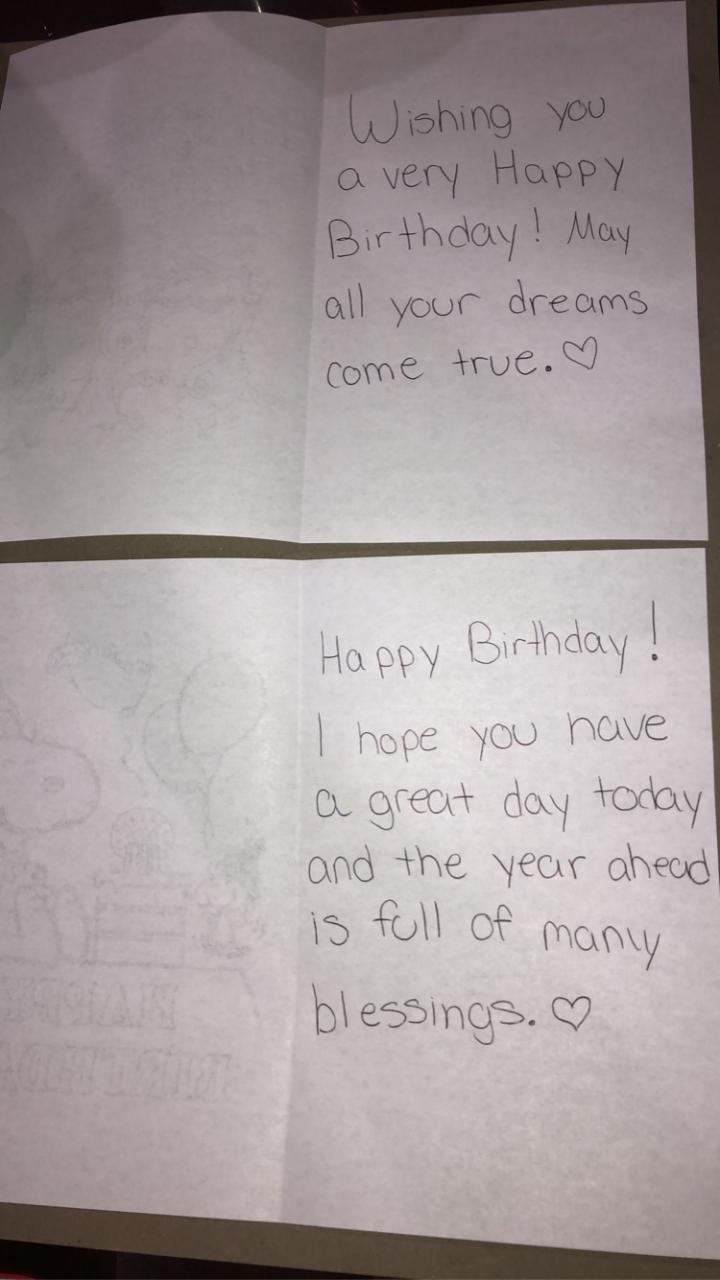 Wishing you
a very Happy
Birthday! May
all your dreams
come true. ♡
Happy Birthday!
I hope you have
a great day today
and the year ahead
is full of many
blessings. ♡
HAPPY
BIRTHDAY